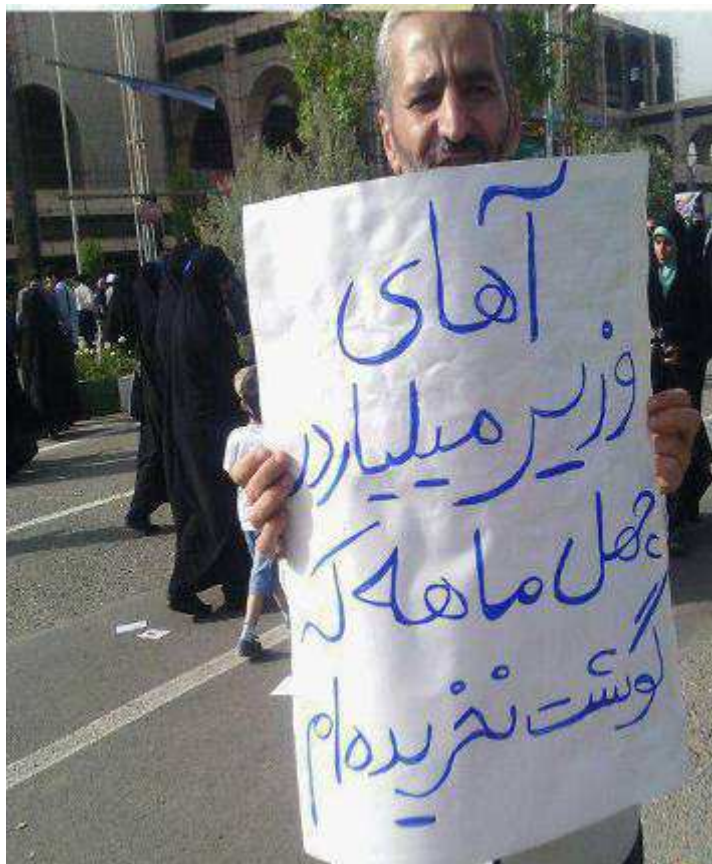 آهای
وزیر میلیاردر
چهل ماهه که
گوشت نخریده ام